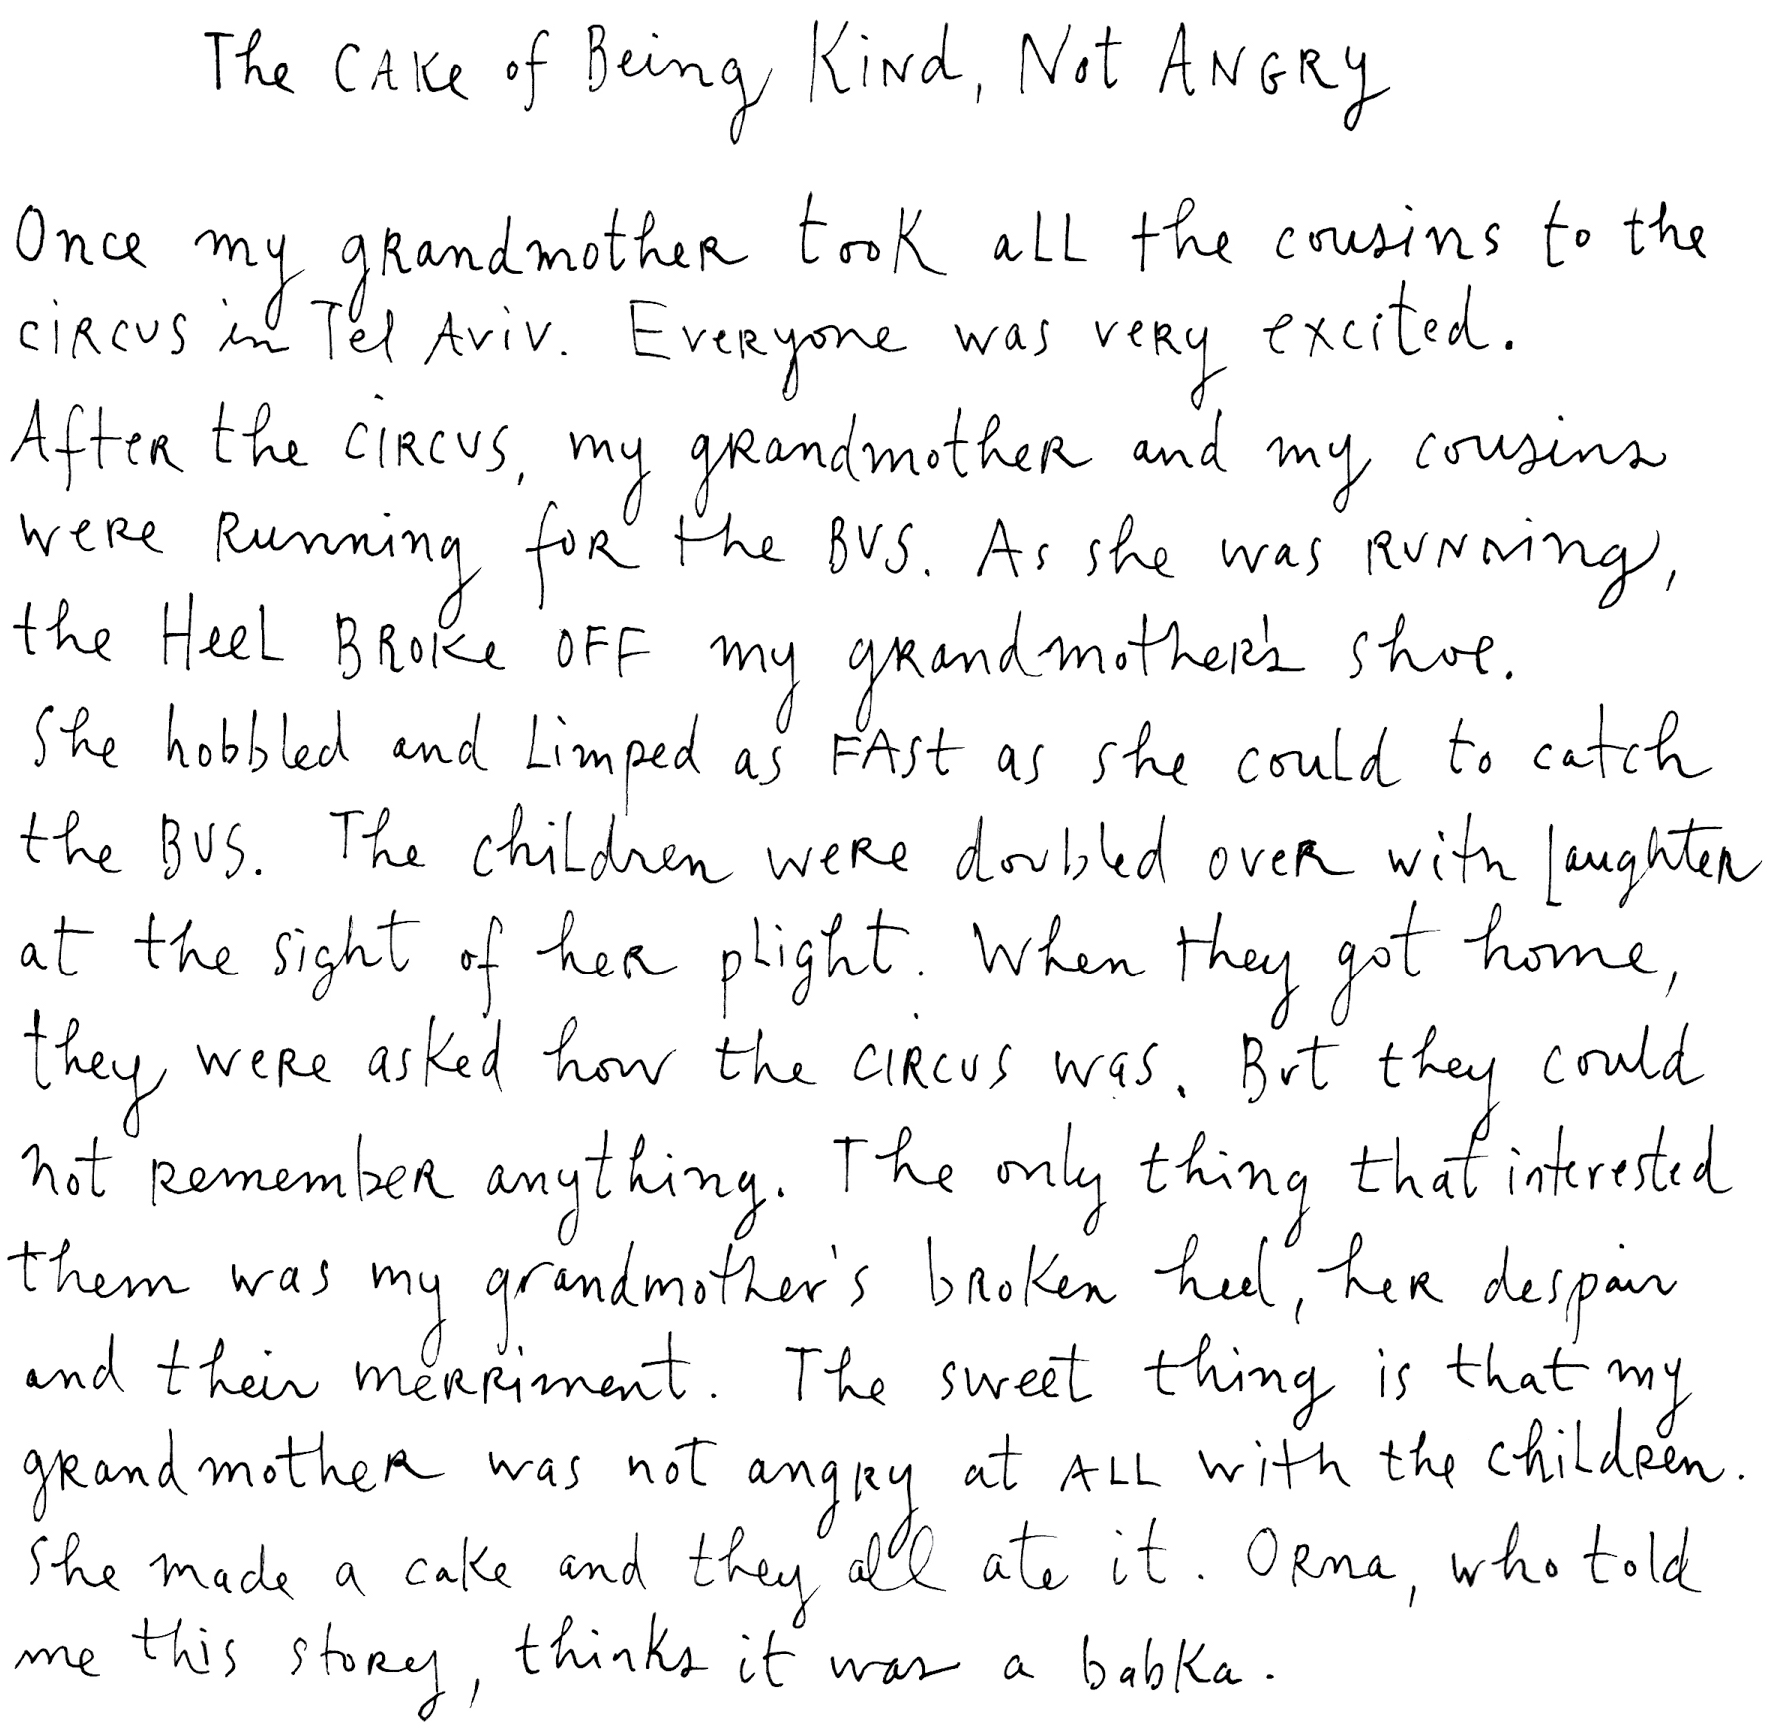 The CAKe of Being Kind, Not ANGRy
Once my gRandmotheR tooK aLL the cousins to the
ciRcus in Tel Aviv. EveRyone was veRy excited.
AfteR the CIRCUS, my gRandmotheR and my cousins
weRe Running foR the BUS. As she was RUNNing,
the HeeL BRoKe OFF my gRandmotheR's shoe.
She hobbled and Limped as FASt as she couLd to catch
the BUS. The chiLdren weRe doubled oveR with Laughter
at the sight of heR pLight. When they got home,
they weRe asKed how the CIRCUS was. But they could
not RemembeR anything. The only thing that interested
them was my grandmother's bRoKen heel, heR despair
and their meRRiment. The sweet thing is that my
gRandmotheR was not angRy at ALL with the chiLdRen.
She made a caKe and they all ate it. ORna, who told
me this stoRy, thinKs it was a babKa.